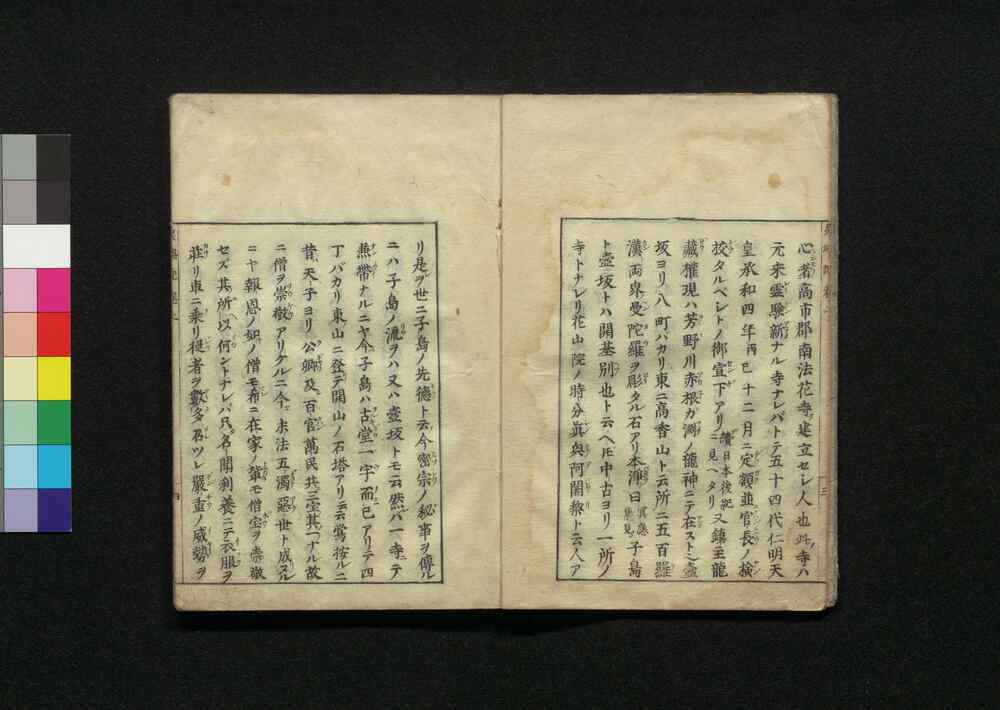 心者高市郡南法花寺建立セシ人也此寺ハ
元来霊驗新ナル寺ナレバトテ五十四代仁明天
皇承和四年丙巳十二月ニ定額並官長ノ檢
挍タルベシトノ御宣下アリ續日本後紀ニ見ヘタリ又鎮主龍
藏權現ハ芳野川赤根ガ渕ノ龍神ニテ在スト壷
坂ヨリ八町バカリ東ニ高香山ト云所ニ五百羅
漢両界曼陀羅ヲ彫タル石アリ本源曰子島
ト壷坂トハ開基別也ト云ヘ𪜈中古ヨリ一所ノ
寺トナレリ花山院ノ時分眞與阿闍梨ト云人ア
リ是ヲ世ニ子島ノ先德ト云今密宗ノ秘事ヲ傳ル
ニハ子島ノ流ヲハ又ハ壷坂トモ云然バ一寺ニテ
兼帶ナルニヤ今子島ハ古堂一宇而已アリテ四
丁バカリ東山ニ登テ開山ノ石塔アリ云云嘗按ルニ
昔天子ヨリ公卿及百官萬民共三宝其一ナル故
ニ僧ヲ崇敬アリケルニ今ニ末法五濁惡世ト成ヌル
ニヤ報恩ノ如ノ僧モ希ニ在家ノ輩モ僧宝ヲ崇敬
セズ其所以何ントナレバ只名聞利養ニテ衣服ヲ
莊リ車ニ乘リ從者ヲ數多召ツレ嚴重ノ威勢ヲ